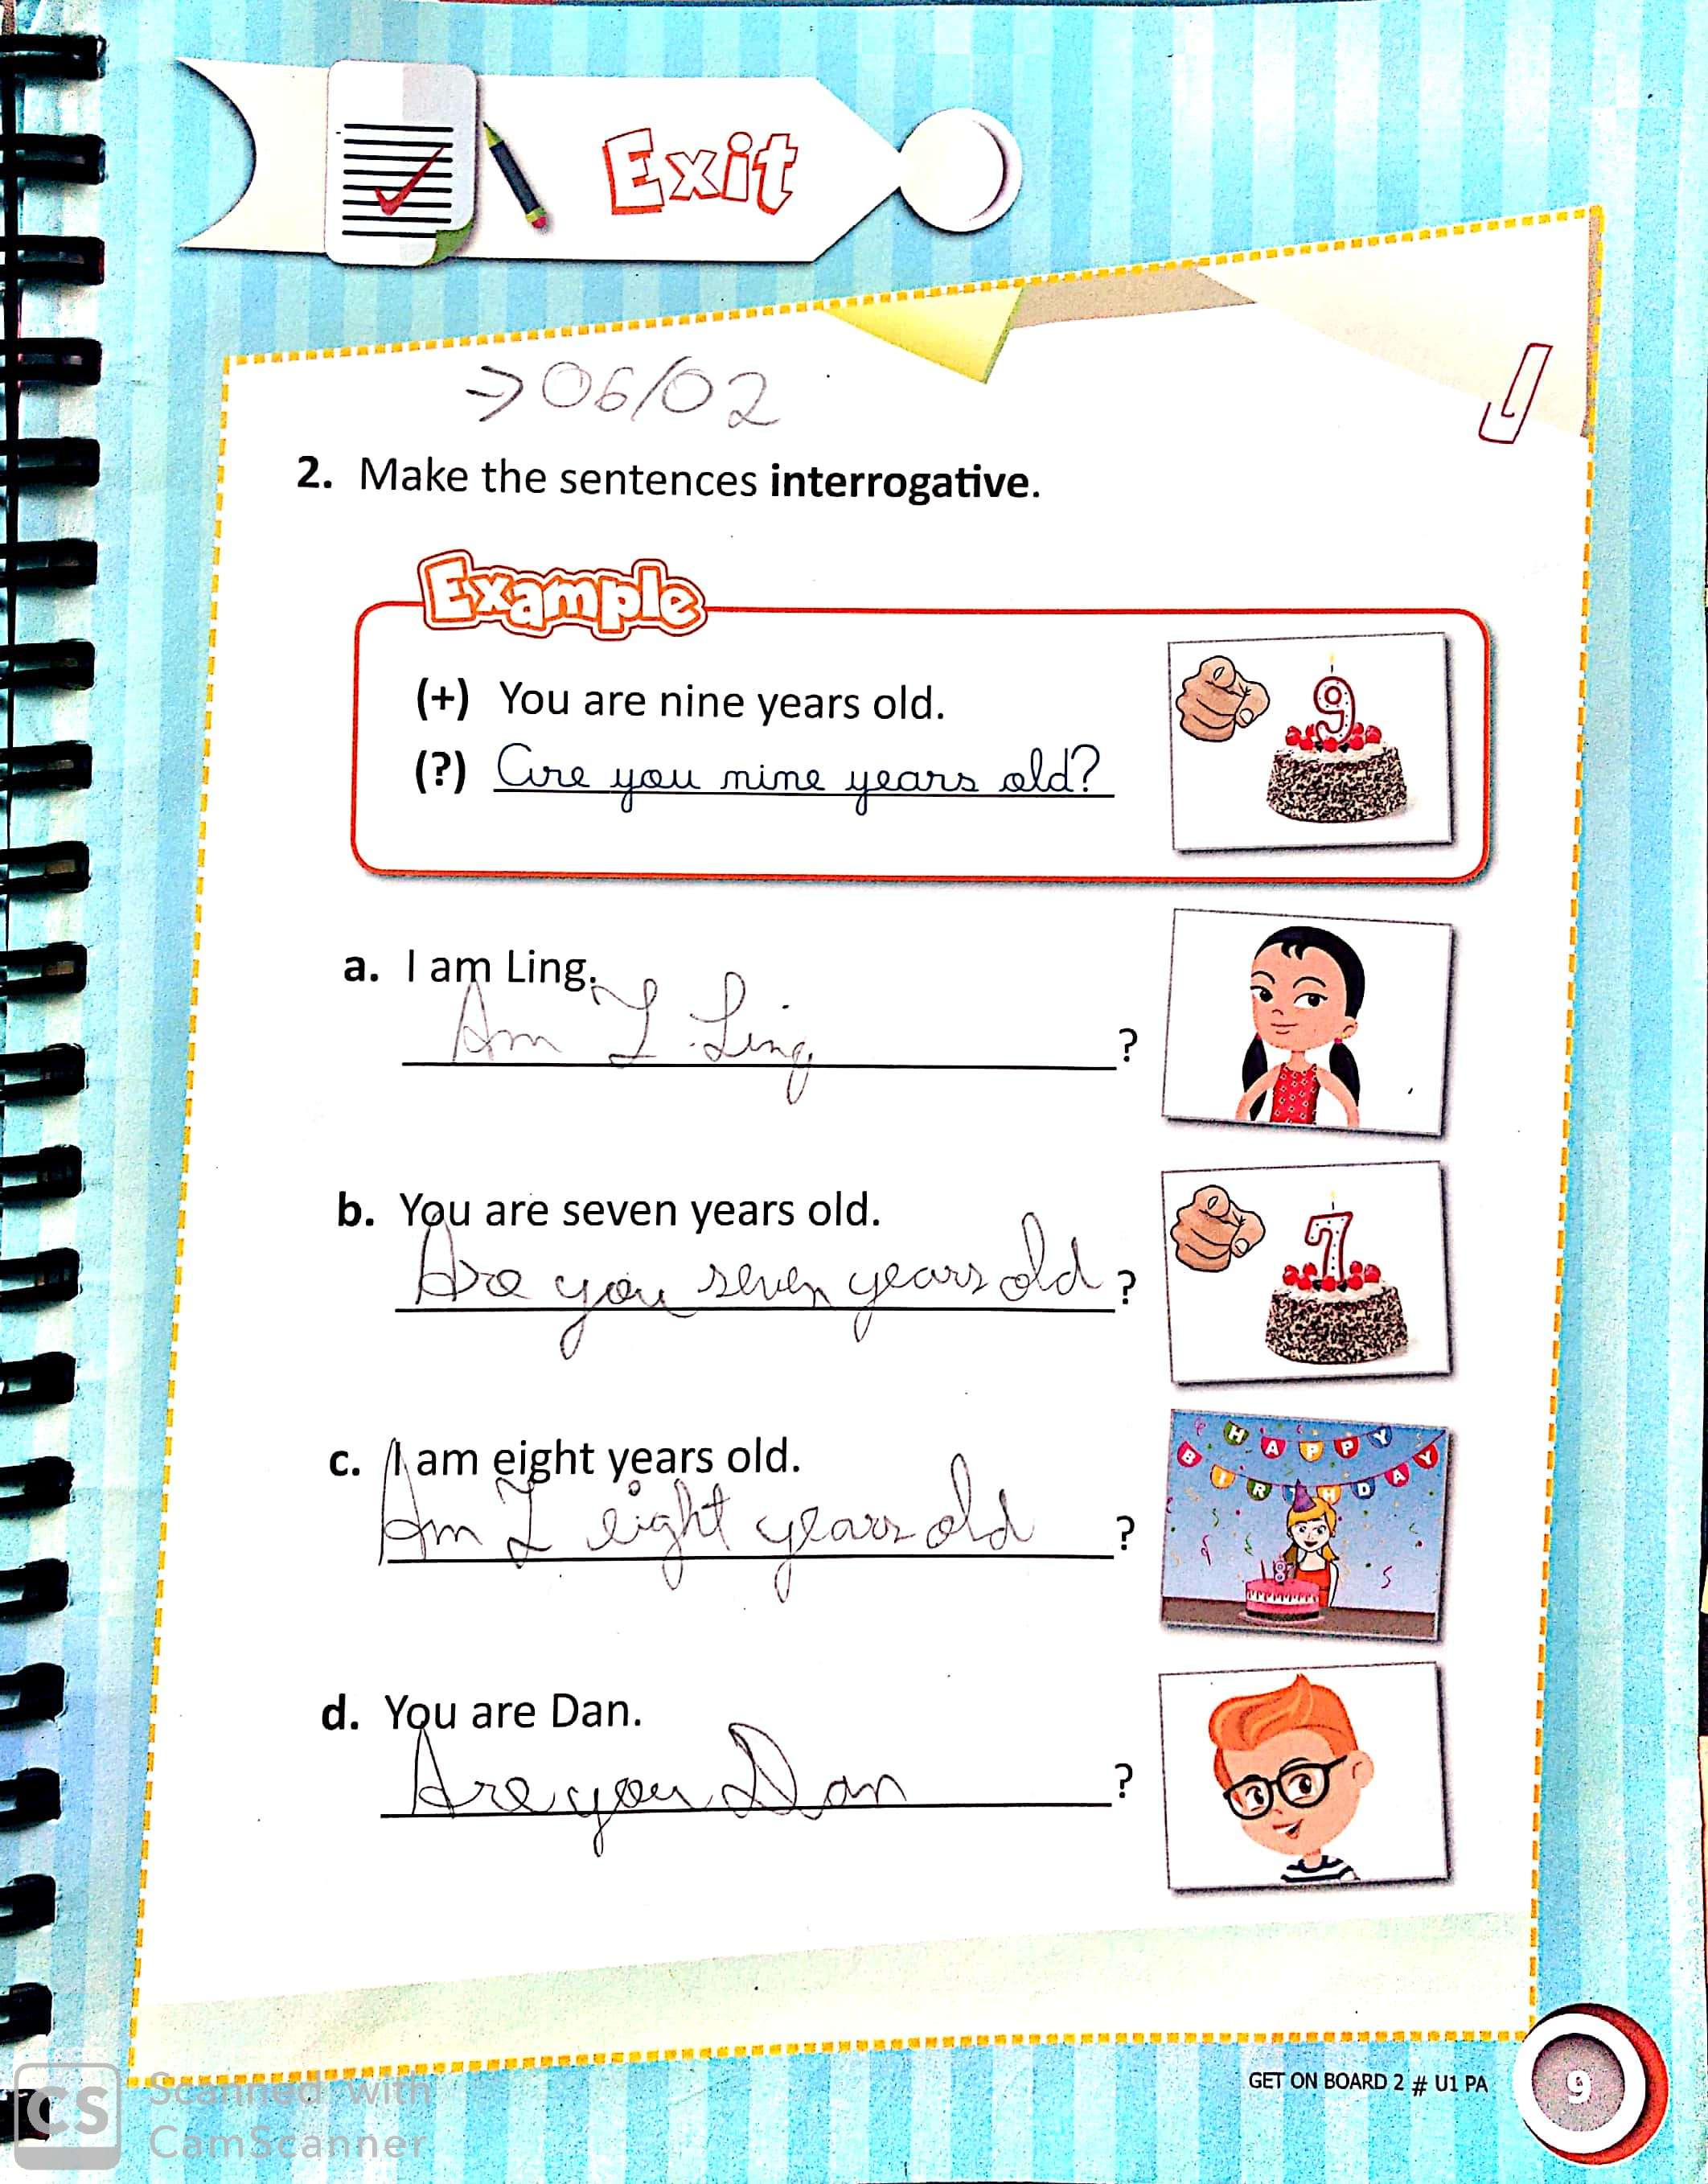 Exit
→ 06/02
2. Make the sentences interrogative.
Example
(+) You are nine years old.
(?) Are you nine years old?
9
a. I am Ling.
Am I Ling ?
b. You are seven years old.
Are you seven years old ?
7
c. I am eight years old.
Am I eight years old ?
HAPPY
BIRTHDAY
8
d. You are Dan.
Are you Dan ?
GET ON BOARD 2 # U1 PA 9
CS Scanned with
CamScanner